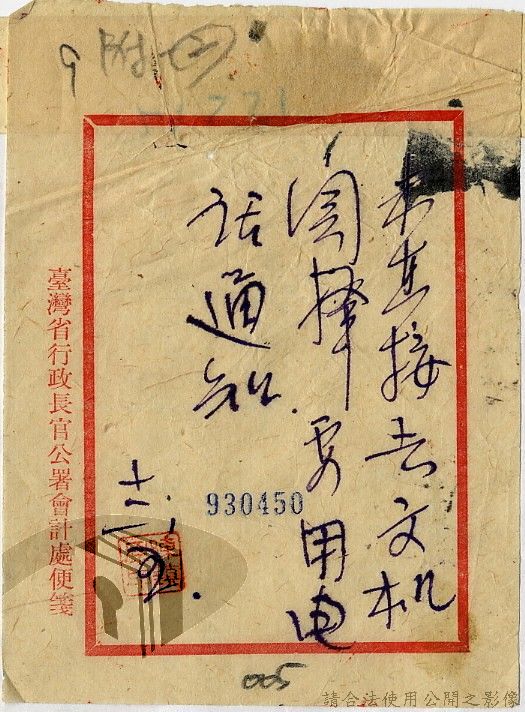 附四
9
未直接去文机
関擇要用电
话通知.
十二、
930450
臺灣省行政長官公署會計處便箋
005
請合法使用公開之影像